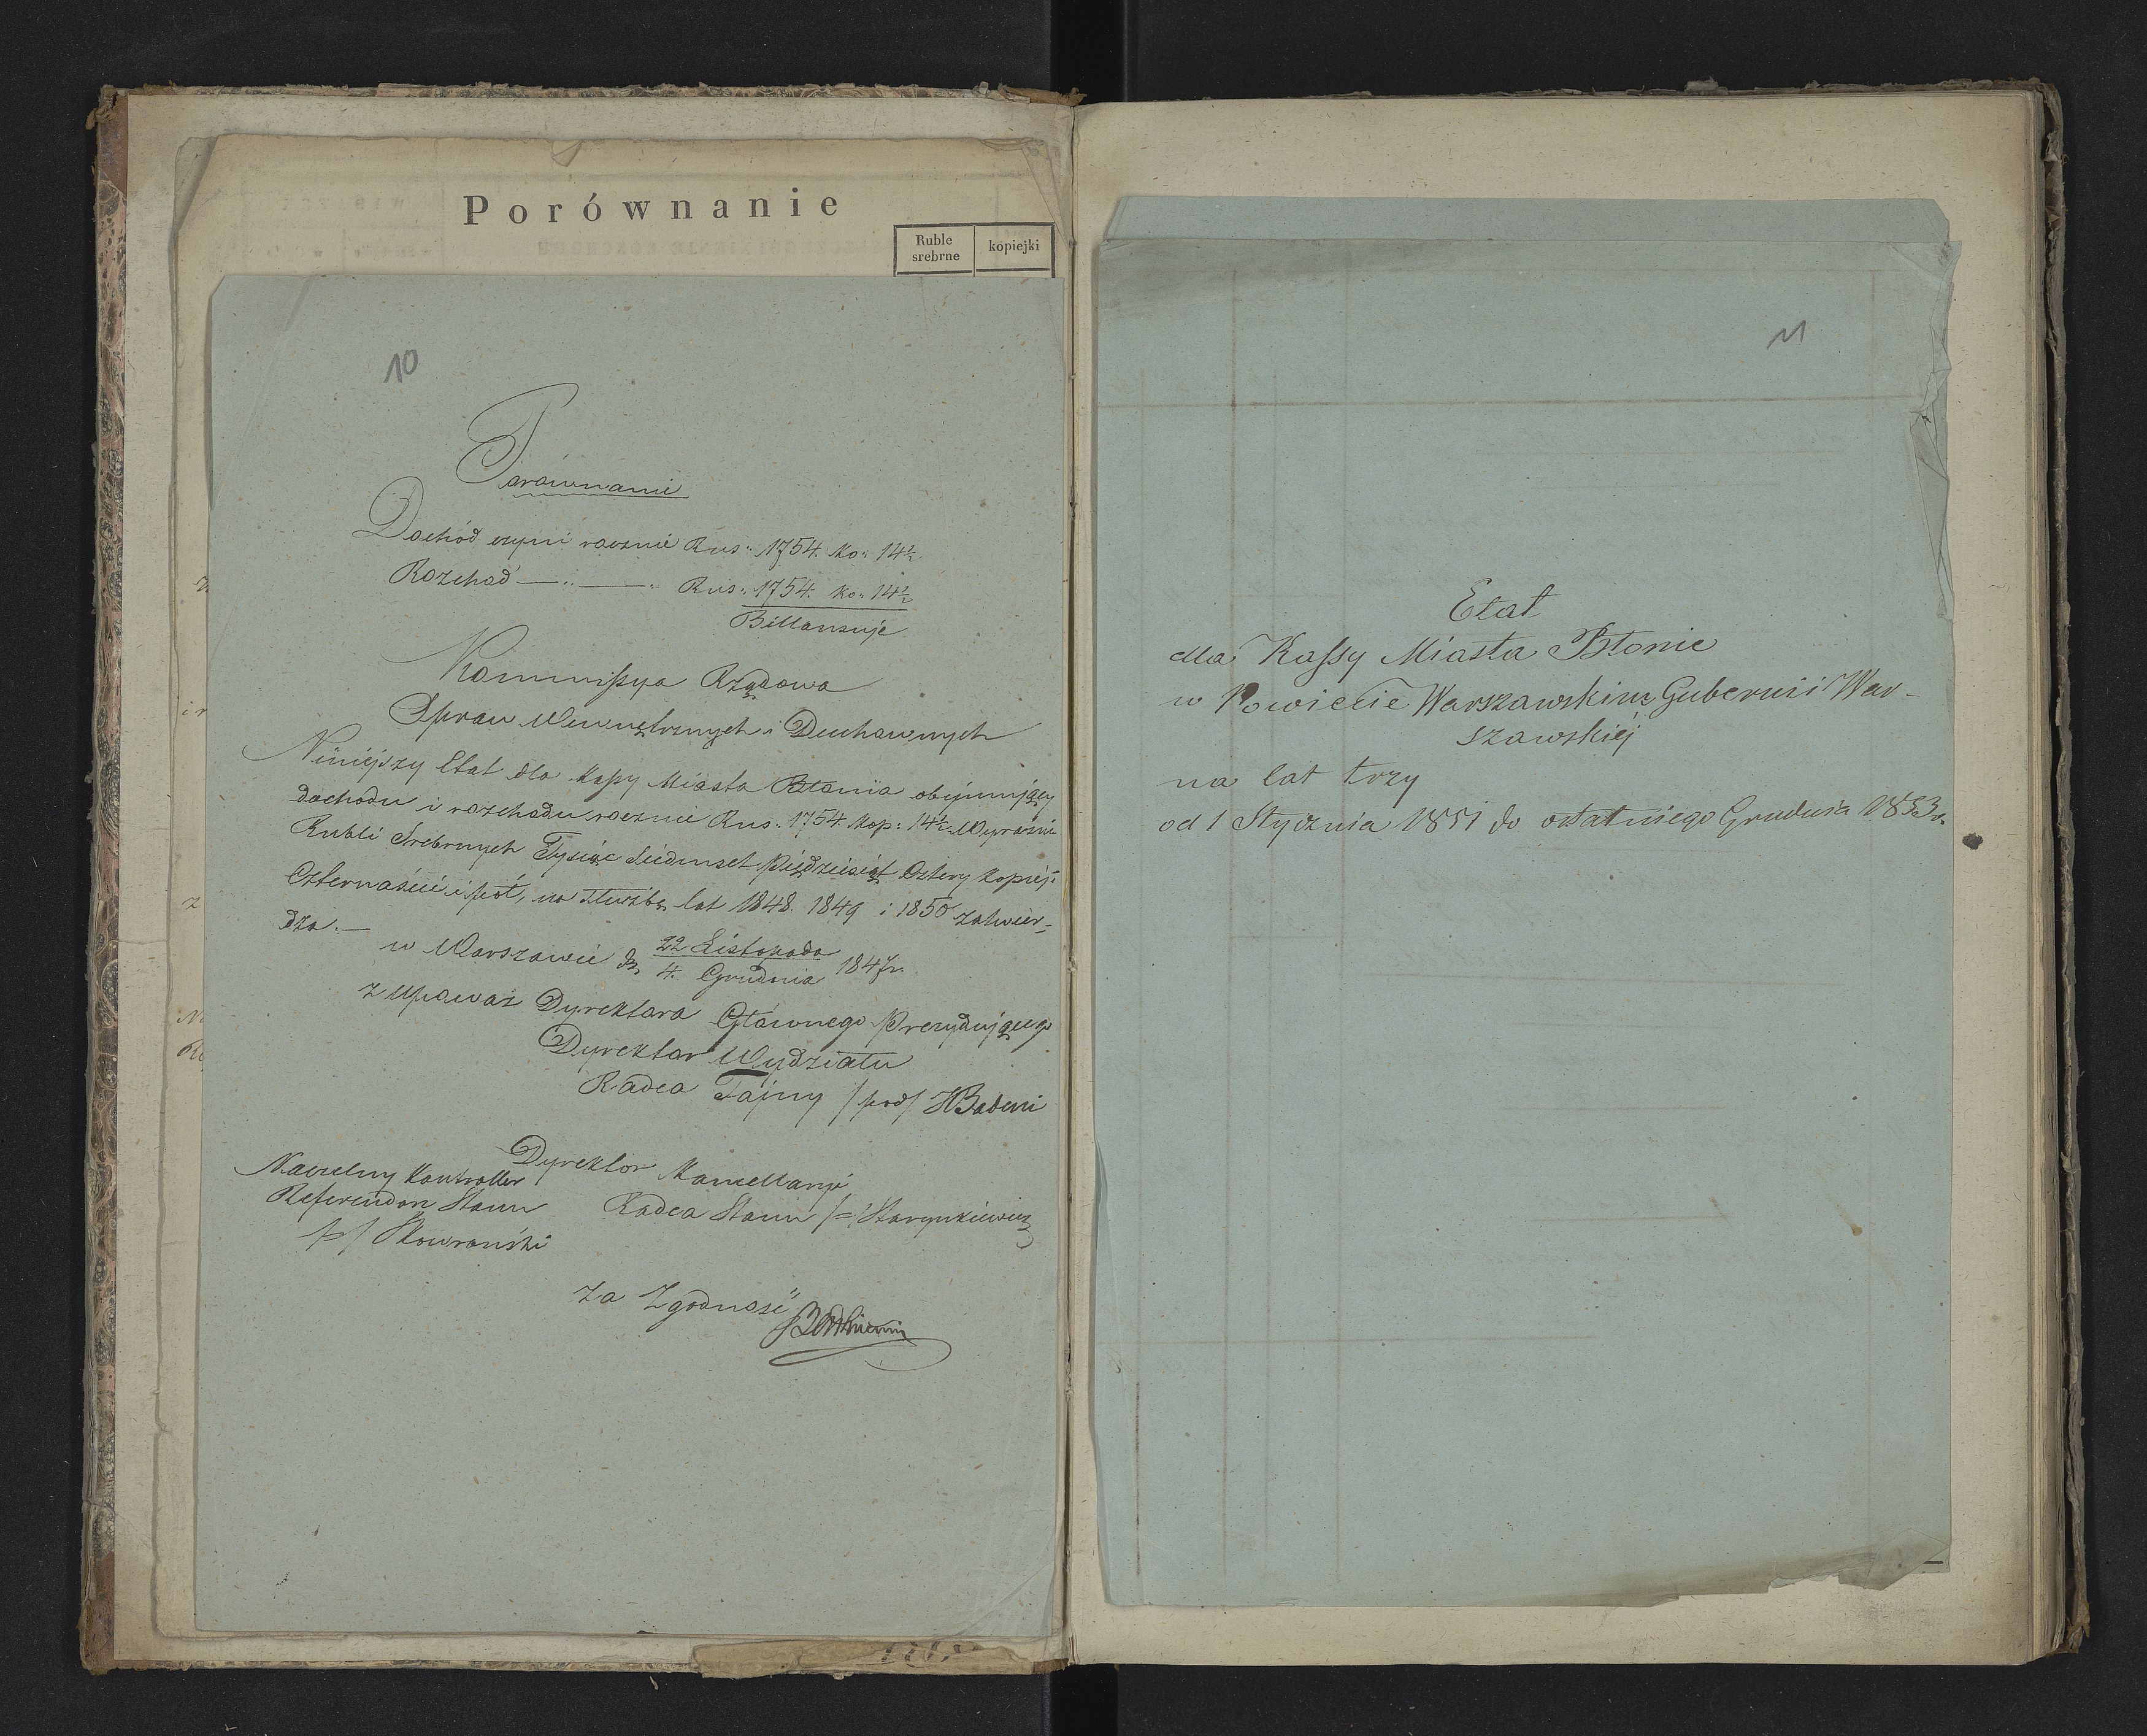 Porównanie
Ruble srebrne
kopiejki
10
Porównanie
Dochód czyni rocznie Rus: 1754. ko: 14½
Rozchod — „ — „ Rus: 1754. ko: 14½
Billansuje
Kommissya Rządowa
Spraw Wewnętrznych i Duchownych
Niniejszy Etat dla Kassy Miasta Błonia obejmujący
dochodu i rozchodu rocznie Rus: 1754. Kop: 14½ Wyraźnie
Rubli Srebrnych Tysiąc Siedmset Pięćdziesiąt Cztery kopiej:
Czternaście i pół, na służbę lat 1848. 1849 i 1850 zatwier-
dza. —
w Warszawie d. 22 Listopada
4. Grudnia 1847 r.
z upoważ Dyrektora Głównego Prezydującego
Dyrektor Wydziału
Radca Tajny /pod/ HBadeni
Dyrektor Kancellaryi
Naczelny Kontroller
Referendarz Stanu
Radca Stanu /=/ Starynkiewicz
/=/ Skowroński
Za Zgodność
11
Etat
dla Kassy Miasta Błonie
w Powiecie Warszawskim Gubernii War-
szawskiéj
na lat trzy
od 1 Stycznia 1851 do ostatniego Grudnia 1853 r.